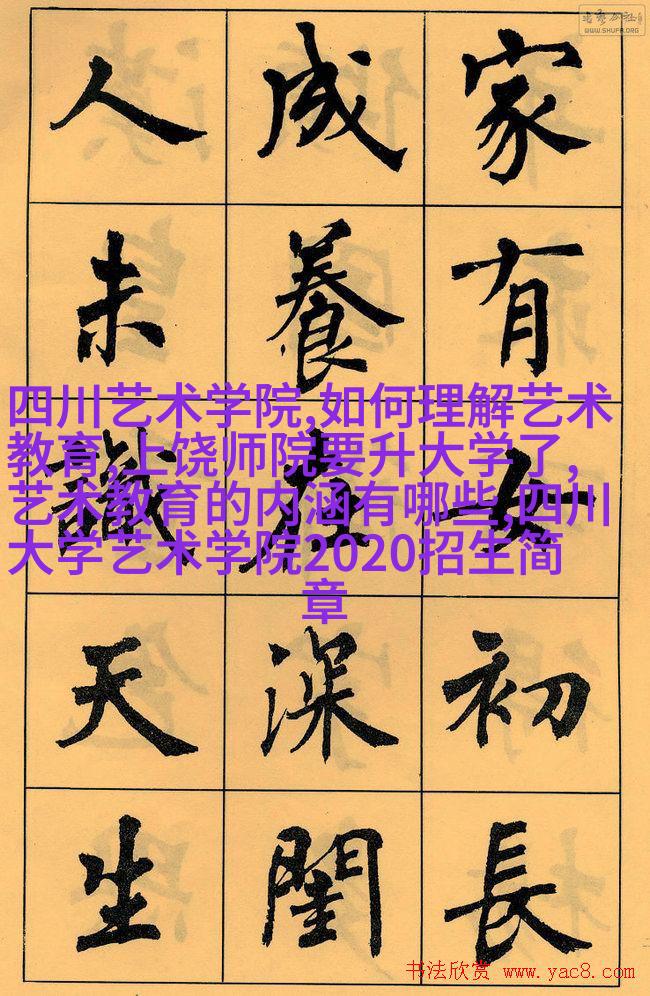 家有女初長
成養在深閨
人未識天生
四川艺术学院,如何理解艺术
教育,上饶师院要升大学了,
艺术教育的内涵有哪些,四川
大学艺术学院2020招生简
章
WWW.SHUFA.ORG
书法欣赏 www.yac8.com